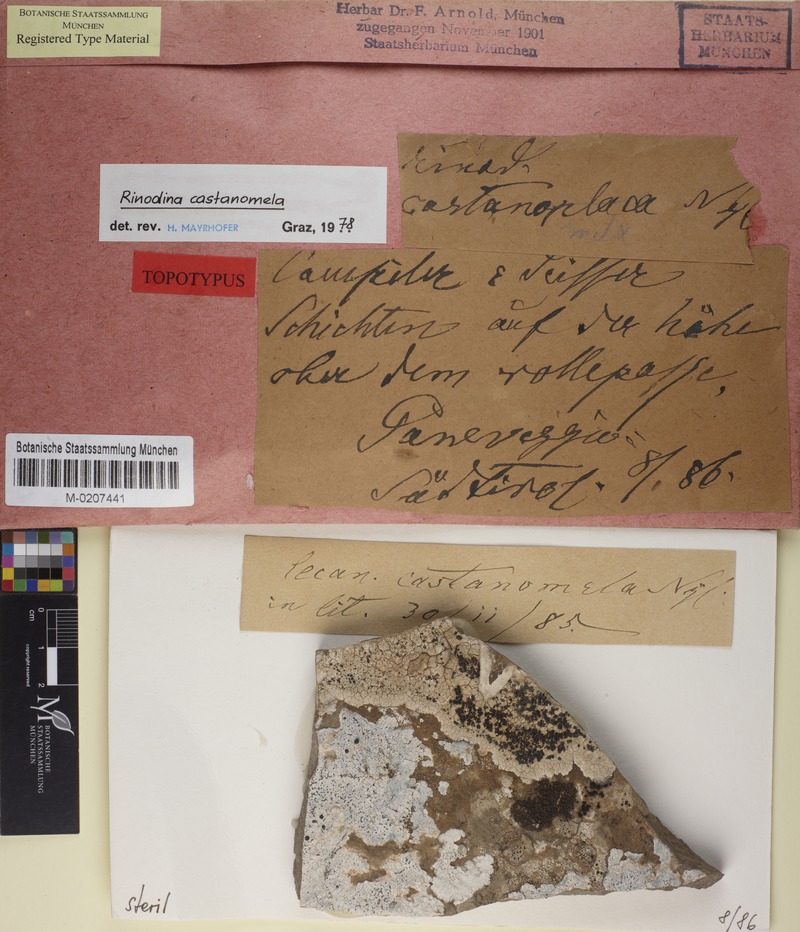 BOTANISCHE STAATSSAMMLUNG
MÜNCHEN
Registered Type Material
Herbar Dr. F. Arnold, München
zugegangen November 1901
Staatsherbarium München
STAATS-
HERBARIUM
MÜNCHEN
Rinod.
castanoplaca Nyl
mela
Rinodina castanomela
det. rev. H. MAYRHOFER Graz, 1978
TOPOTYPUS
Campiler & Seisser
Schichten auf der höhe
ober dem rollepasse,
Paneveggio
Südtirol. 8/. 86.
Botanische Staatssammlung München
M-0207441
Lecan. castanomela Nyl.
in lit. 30/11/85.
cm
0
1
2
copyright reserved
BOTANISCHE
STAATSSAMMLUNG
MÜNCHEN
steril
8/86